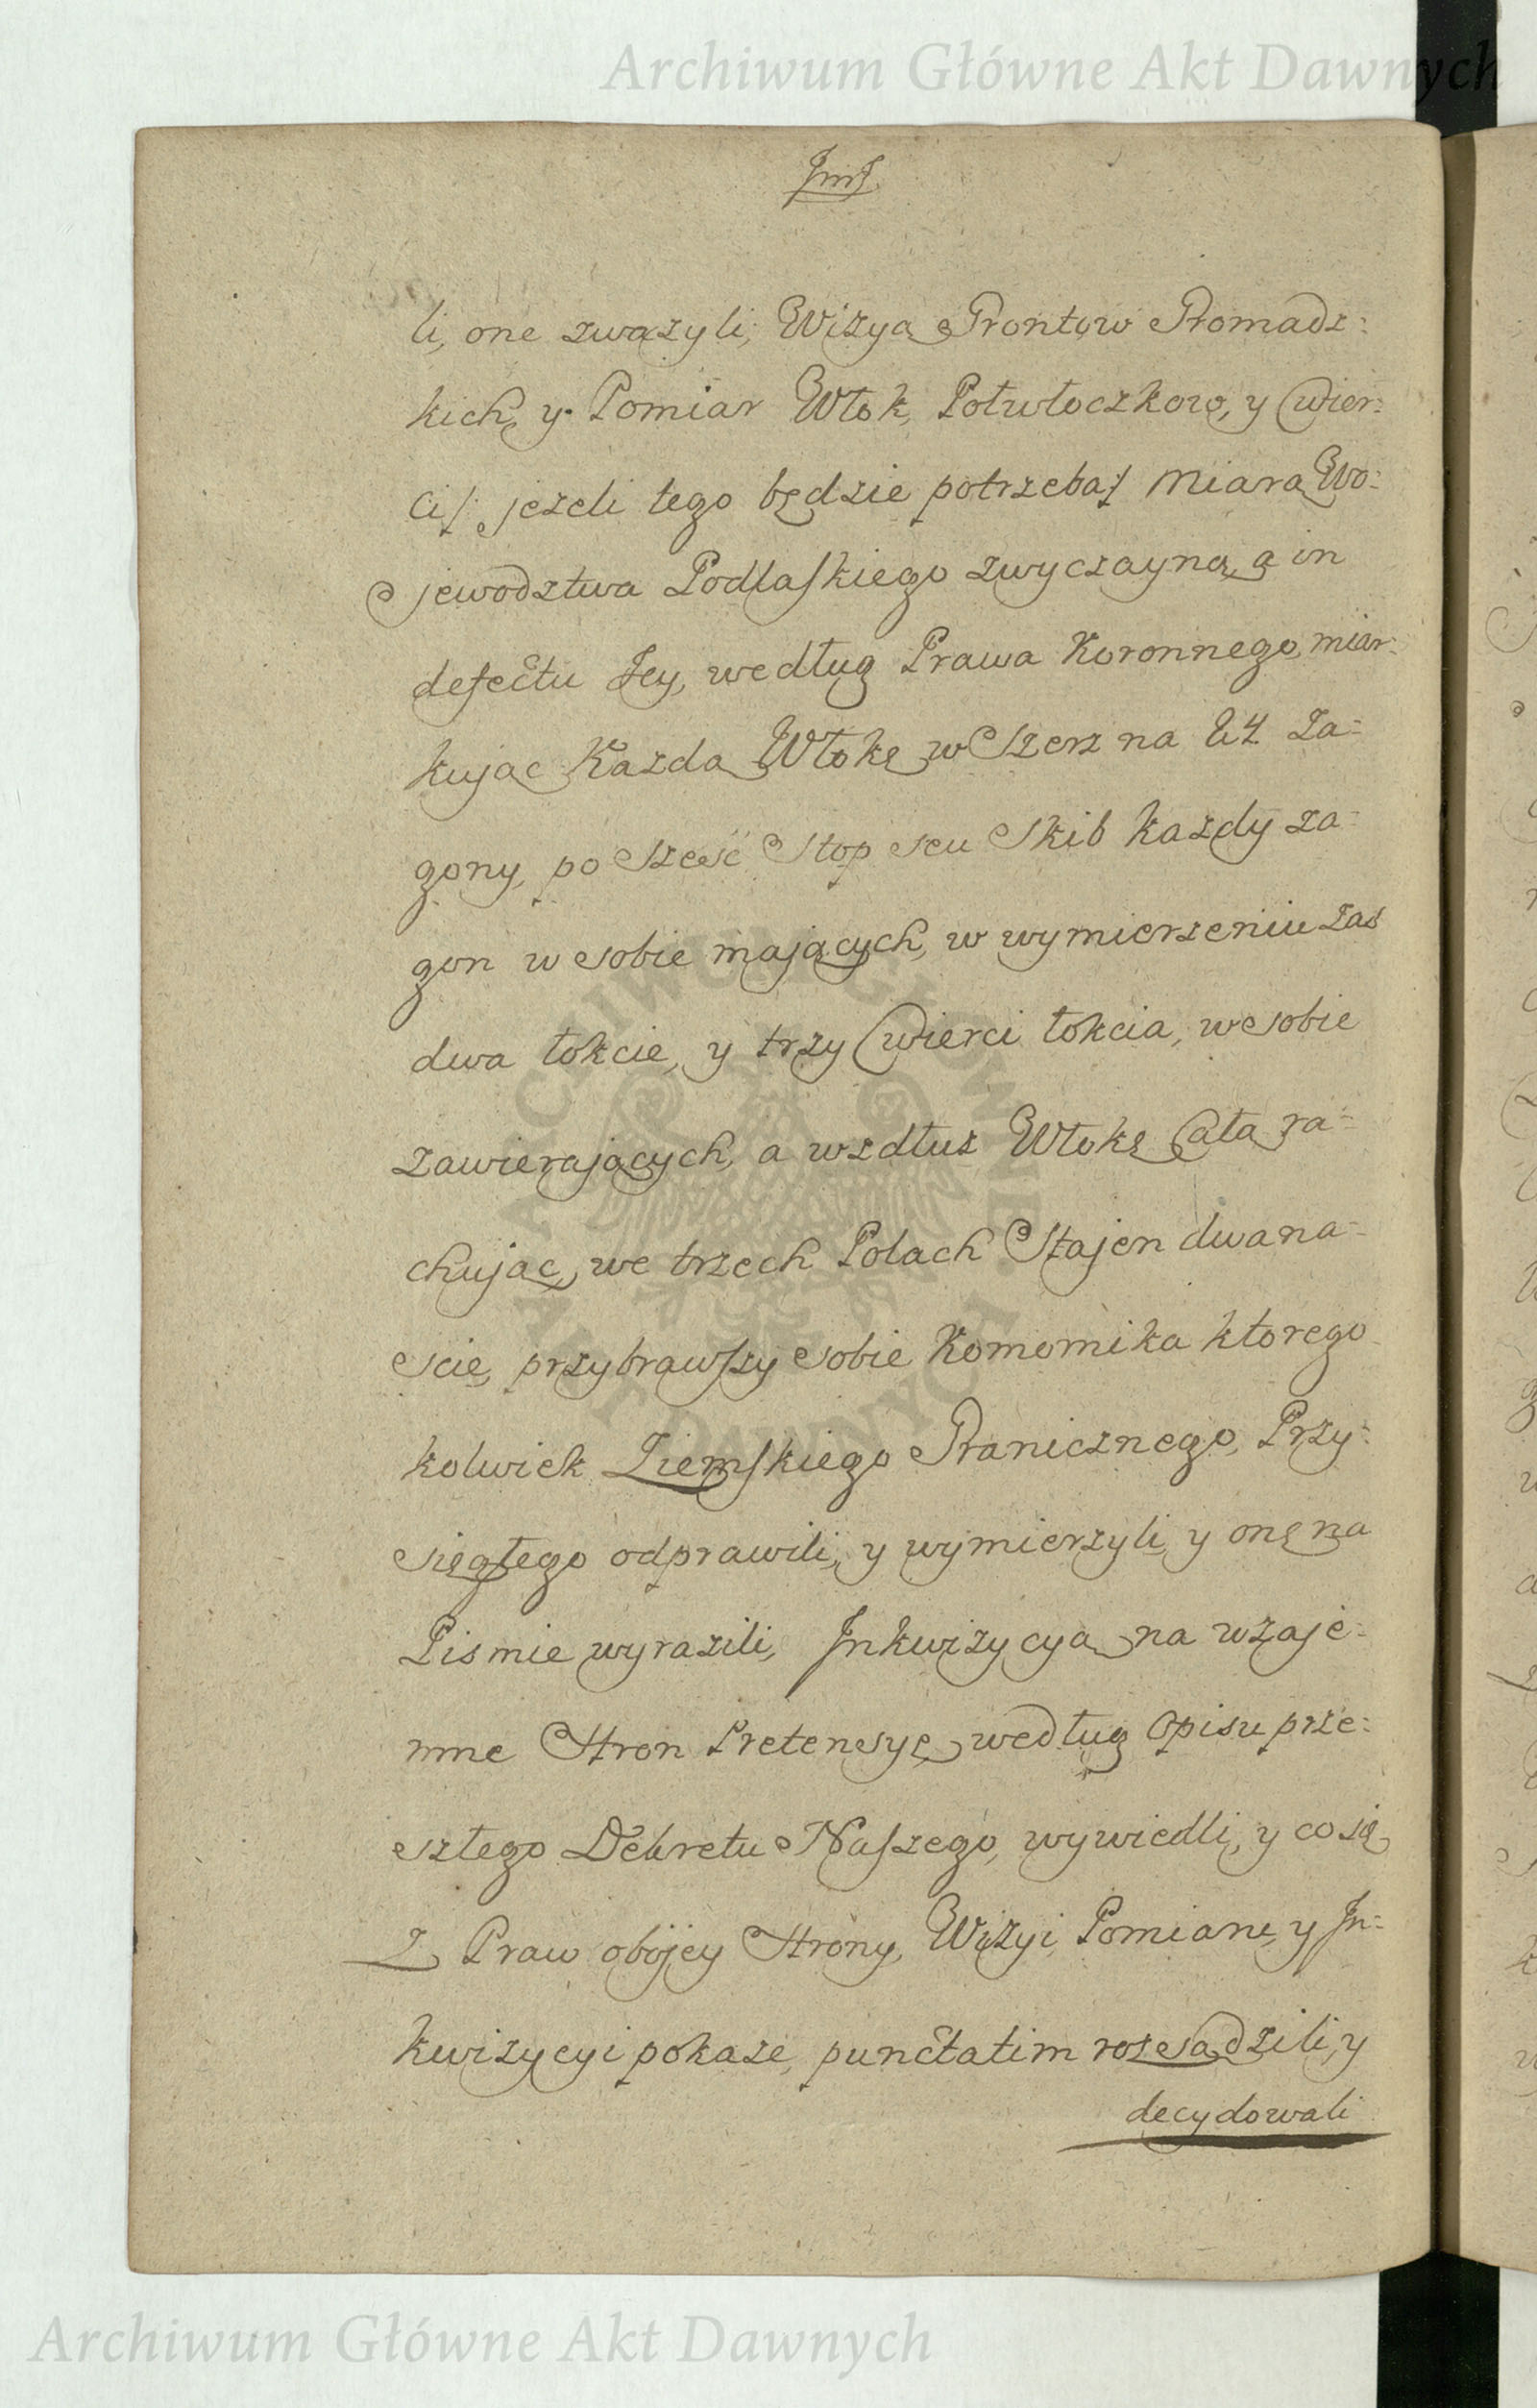 Archiwum Główne Akt Dawnych
JmJ
li, one zwazyli, Wizyą Grontow Gromadz:
kich, y Pomiar Włok, Połwłoczkow, y Cwier:
ci /: jezeli tego będzie potrzeba :/ miarą Wo:
jewodztwa Podlaskiego zwyczayną, a in
defectu Jey, według Prawa Koronnego, miar:
kując Kazdą Włokę w Szerz na 84 Za=
gony, po sześć Stop seu Skib kazdy za=
gon w sobie mających, w wymierzeniu zas
dwa łokcie, y trzy Cwierci łokcia, w sobie
zawierających, a wzdłuz Włokę Całą ra=
chując, we trzech Polach Stajen dwana=
scie, przybrawszy sobie Komornika ktorego
kolwiek Ziemskiego Granicznego, Przy:
sięgłego odprawili, y wymierzyli, y onę na
Pismie wyrazili, Jnkwizycyą na wzaje:
mne Stron Pretensye, według Opisu prze:
szłego Dekretu Naszego, wywiedli, y co się
Z Praw obojey Strony, Wizyi, Pomiaru, y Jn:
kwizycyi pokaze, punctatim rozsądzili, y
decydowali
ARCHIWUM GŁÓWNE AKT DAWNYCH
Archiwum Główne Akt Dawnych